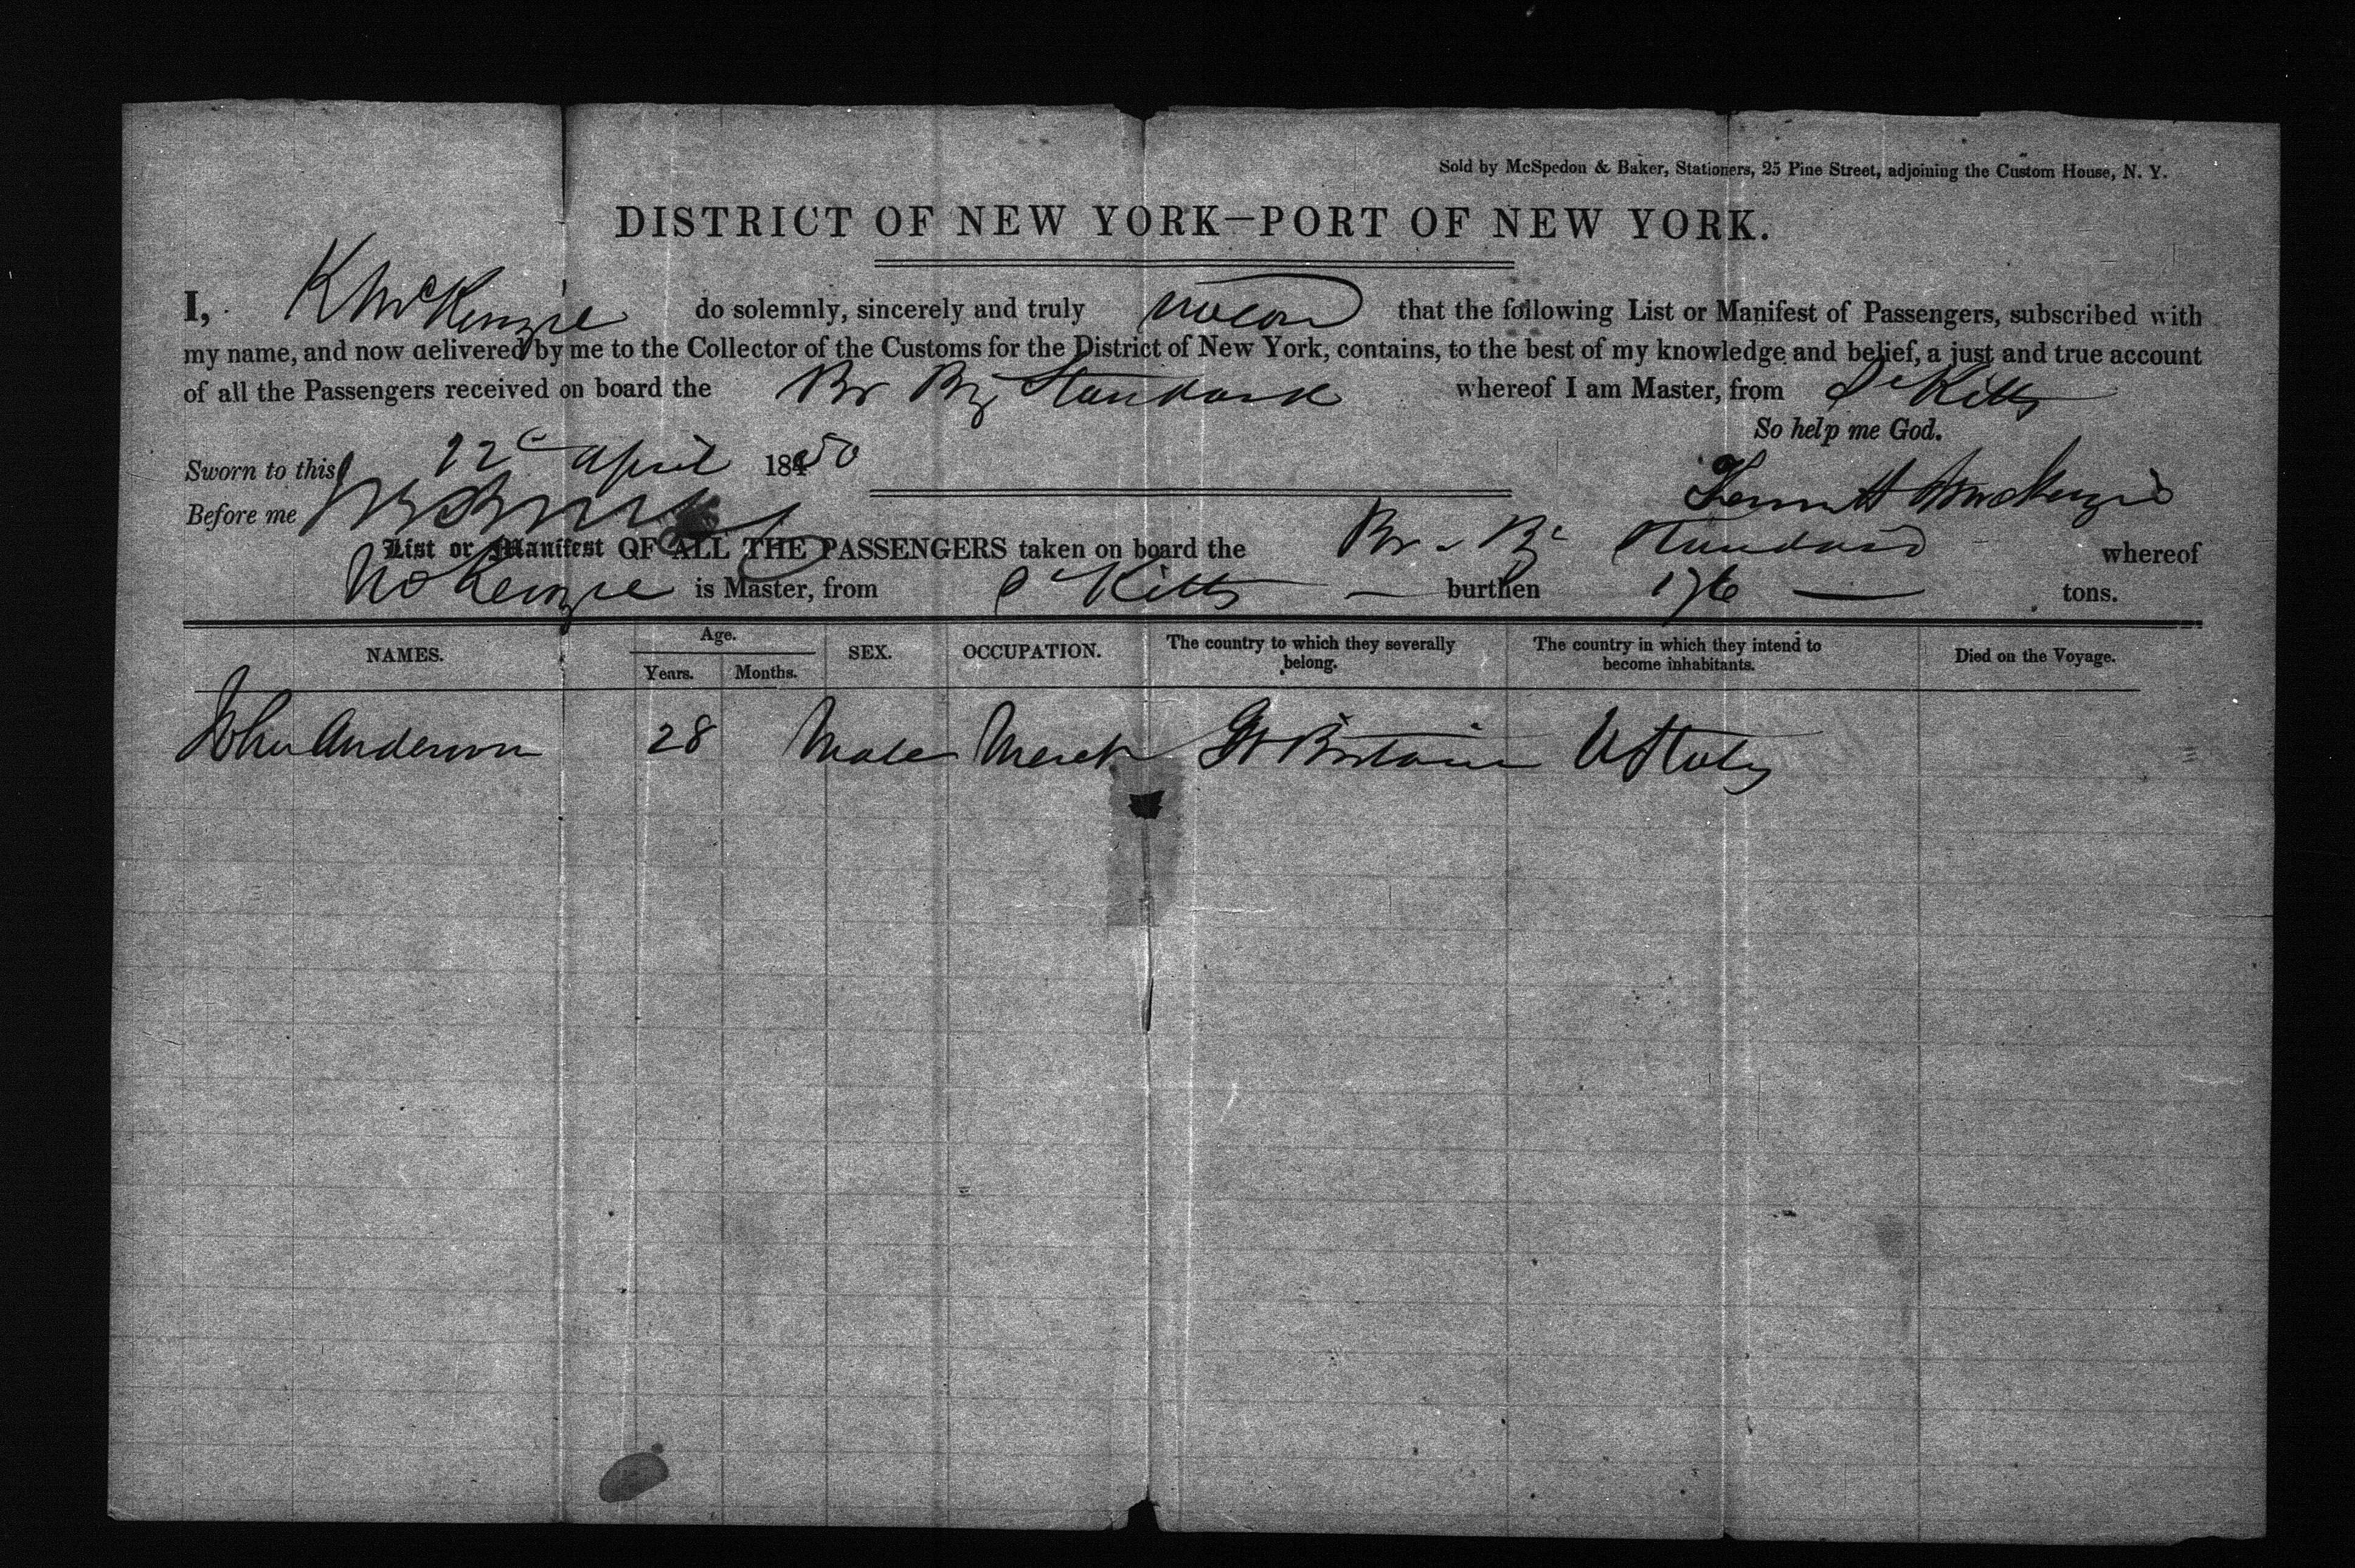 Sold by McSpedon & Baker, Stationers, 25 Pine Street, adjoining the Custom House, N. Y.
DISTRICT OF NEW YORK—PORT OF NEW YORK.
I, K McKenzie do solemnly, sincerely and truly swear that the following List or Manifest of Passengers, subscribed with
my name, and now delivered by me to the Collector of the Customs for the District of New York, contains, to the best of my knowledge and belief, a just and true account
of all the Passengers received on board the Br Bg Standard whereof I am Master, from St Kitts
So help me God.
Sworn to this 22 April 1850
Before me
Kennett MacKenzie
List or Manifest OF ALL THE PASSENGERS taken on board the Br Bg Standard whereof
McKenzie is Master, from St Kitts burthen 176 tons.
NAMES. Age. Years. Months. SEX. OCCUPATION. The country to which they severally belong. The country in which they intend to become inhabitants. Died on the Voyage.
John Anderson 28 Male Merch Gt Britain U States